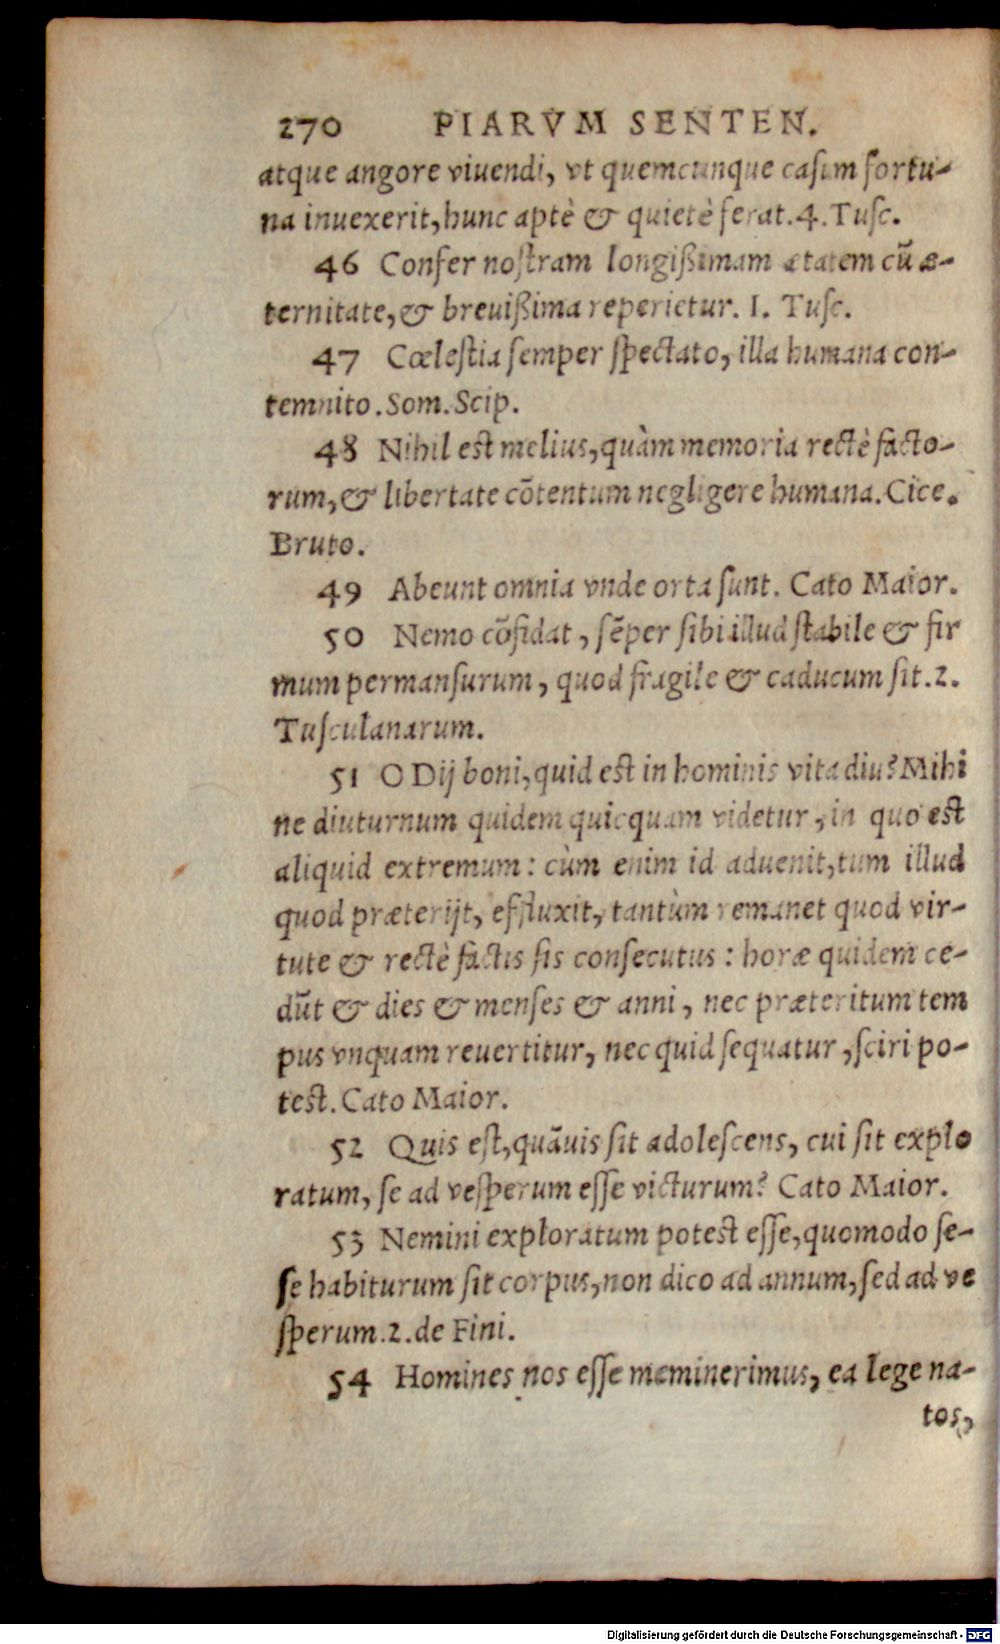 270 PIARVM SENTEN.
atque angore viuendi, vt quemcunque casum fortu-
na inuexerit, hunc aptè & quietè ferat. 4. Tusc.
46 Confer nostram longißimam ætatem cũ æ-
ternitate, & breuißima reperietur. I. Tusc.
47 Cœlestia semper spectato, illa humana con-
temnito. Som. Scip.
48 Nihil est melius, quàm memoria rectè facto-
rum, & libertate cõtentum negligere humana. Cice.
Bruto.
49 Abeunt omnia vnde orta sunt. Cato Maior.
50 Nemo cõfidat, sẽper sibi illud stabile & fir
mum permansurum, quod fragile & caducum sit. 2.
Tusculanarum.
51 O Dij boni, quid est in hominis vita diu? Mihi
ne diuturnum quidem quicquam videtur, in quo est
aliquid extremum: cùm enim id aduenit, tum illud
quod præterijt, effluxit, tantùm remanet quod vir-
tute & rectè factis sis consecutus: horæ quidem ce-
dũt & dies & menses & anni, nec præteritum tem
pus vnquam reuertitur, nec quid sequatur, sciri po-
test. Cato Maior.
52 Quis est, quãuis sit adolescens, cui sit explo
ratum, se ad vesperum esse victurum? Cato Maior.
53 Nemini exploratum potest esse, quomodo se-
se habiturum sit corpus, non dico ad annum, sed ad ve
sperum. 2. de Fini.
54 Homines nos esse meminerimus, ea lege na-
tos,
Digitalisierung gefördert durch die Deutsche Forschungsgemeinschaft - DFG